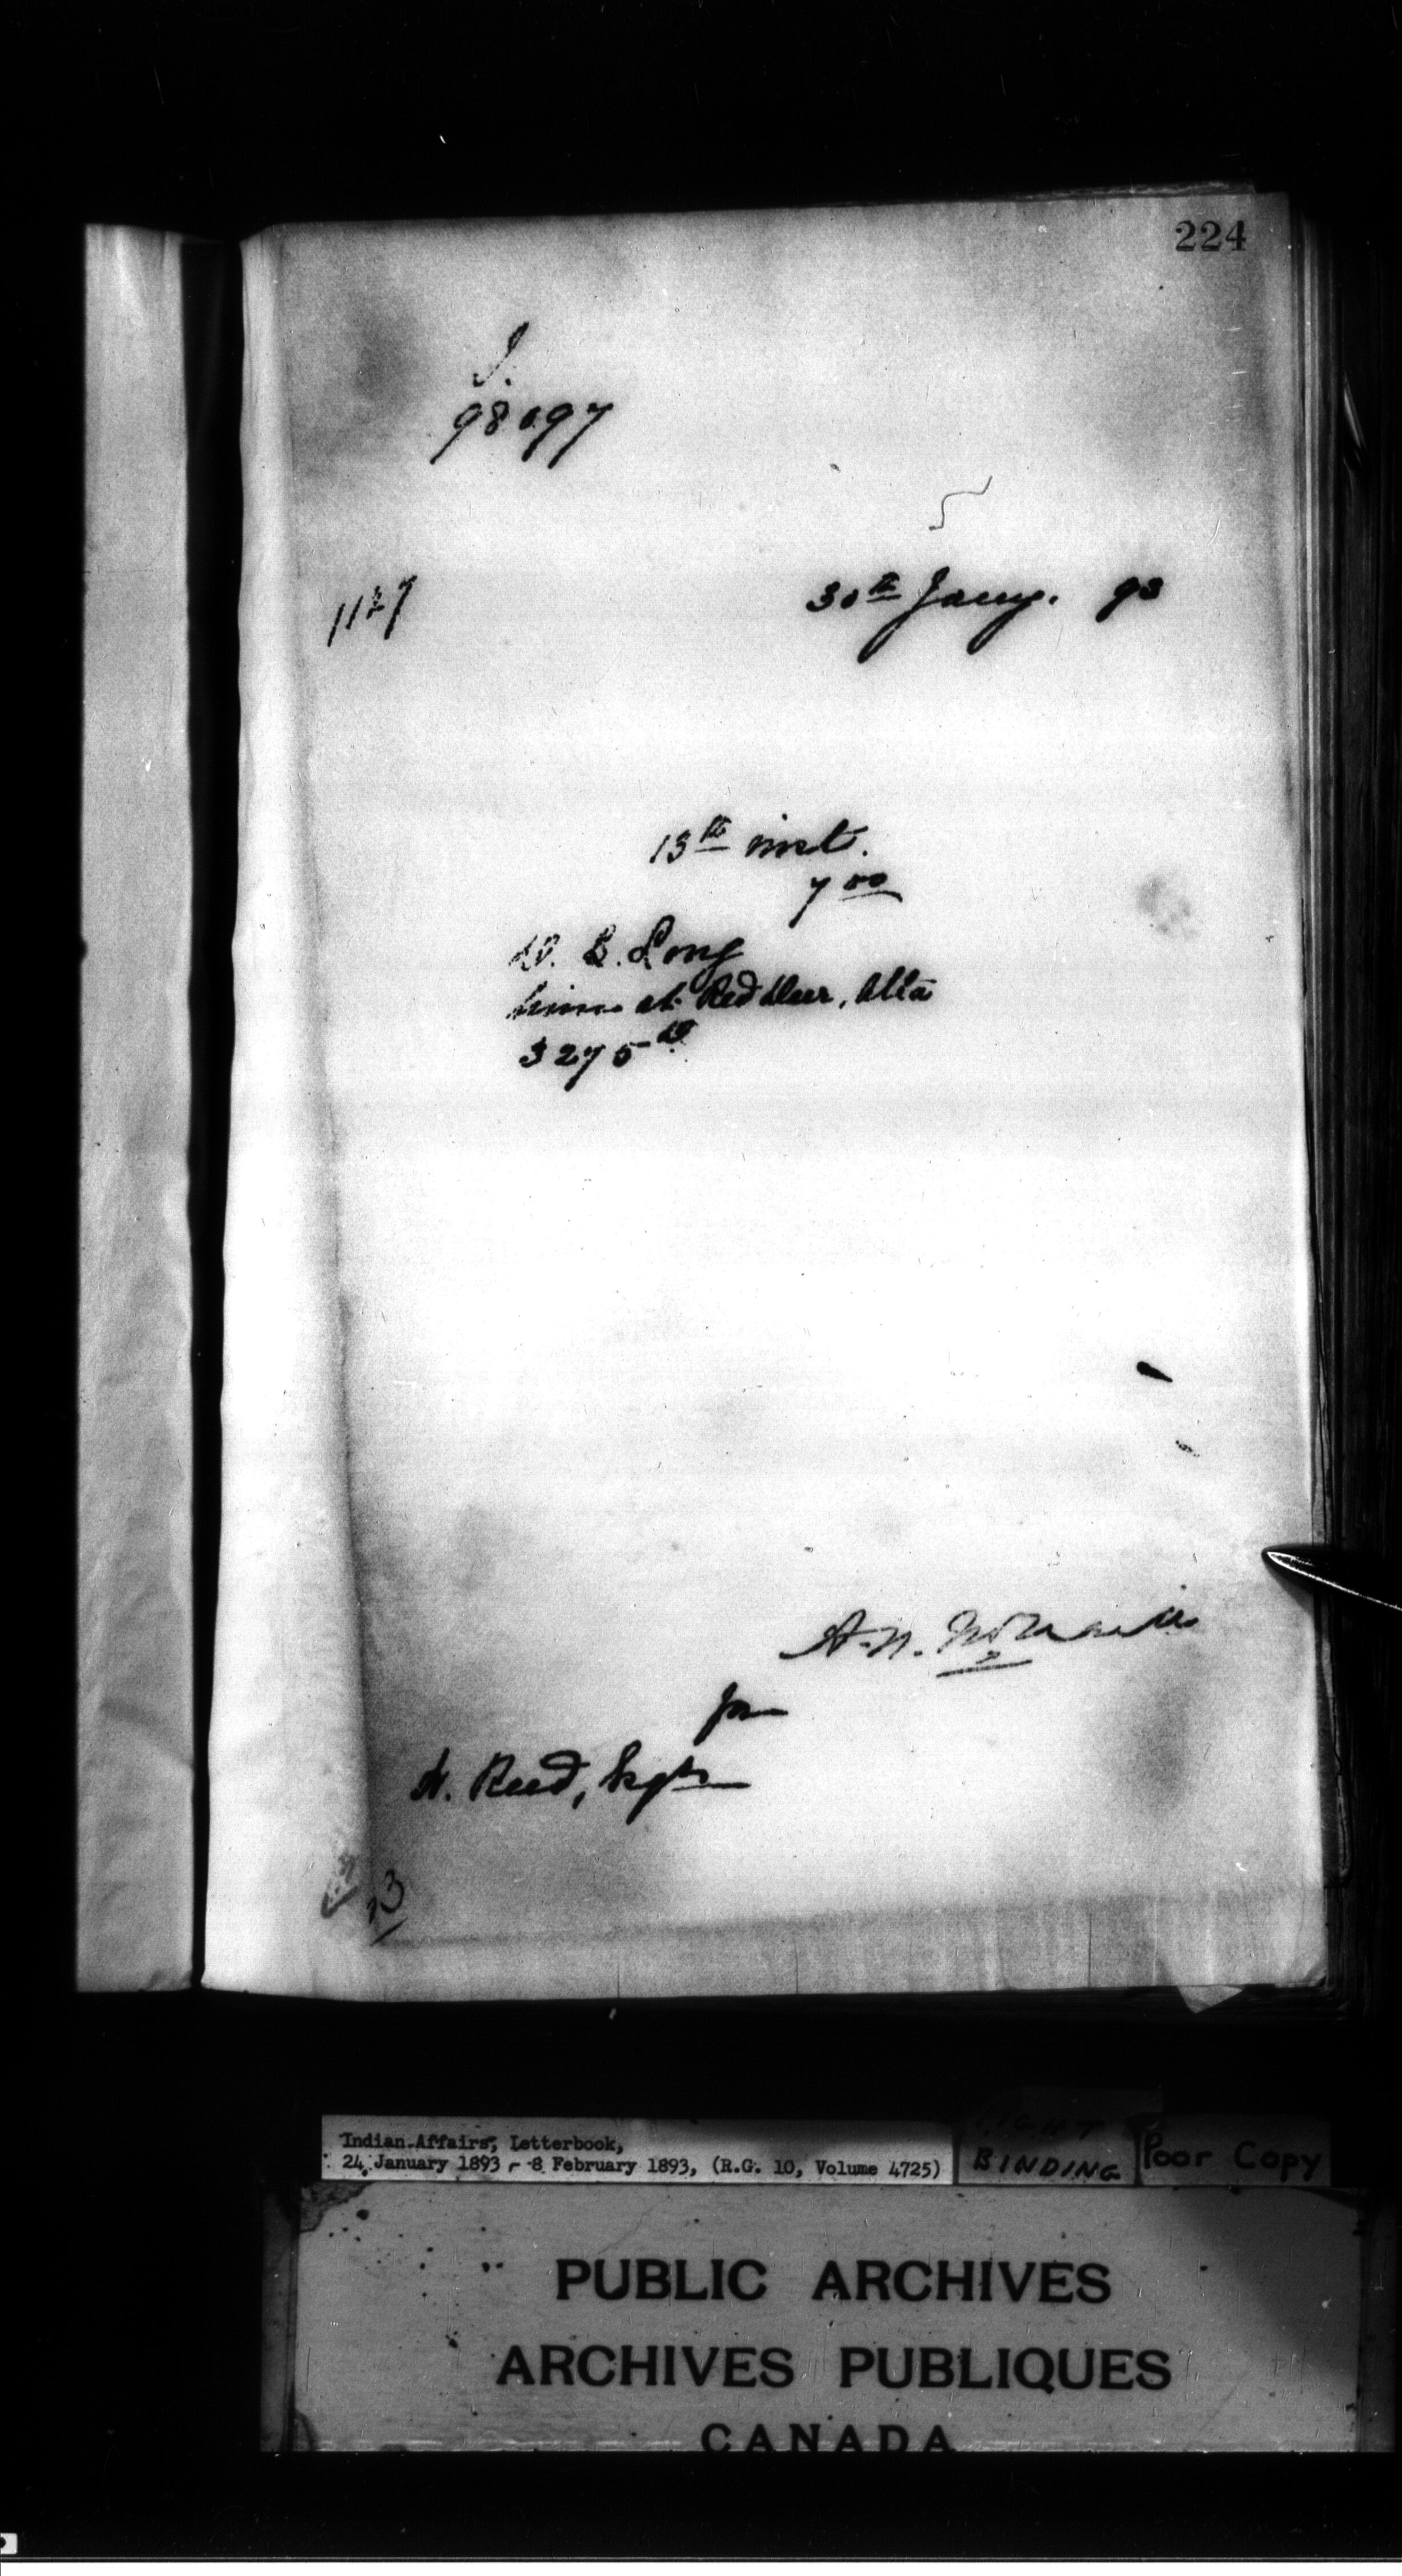 224
J.
98097
1127
30th Jany. 93
13th inst.
7 00
D. L. Long
him at Red Deer, Alta
$275
A. N. McNeill
for
H. Reed, Regina
23
Indian Affairs, Letterbook,
24 January 1893 - 8 February 1893, (R.G. 10, Volume 4725)
BINDING
Poor Copy
PUBLIC ARCHIVES
ARCHIVES PUBLIQUES
CANADA